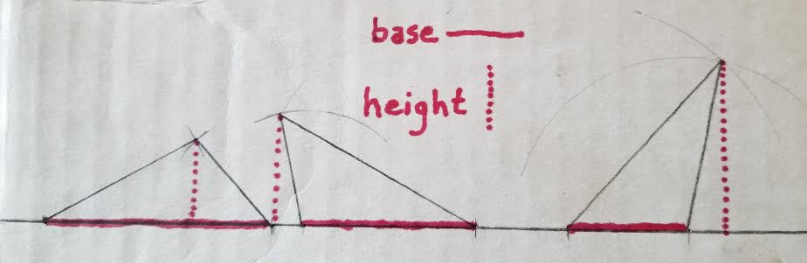 base
height